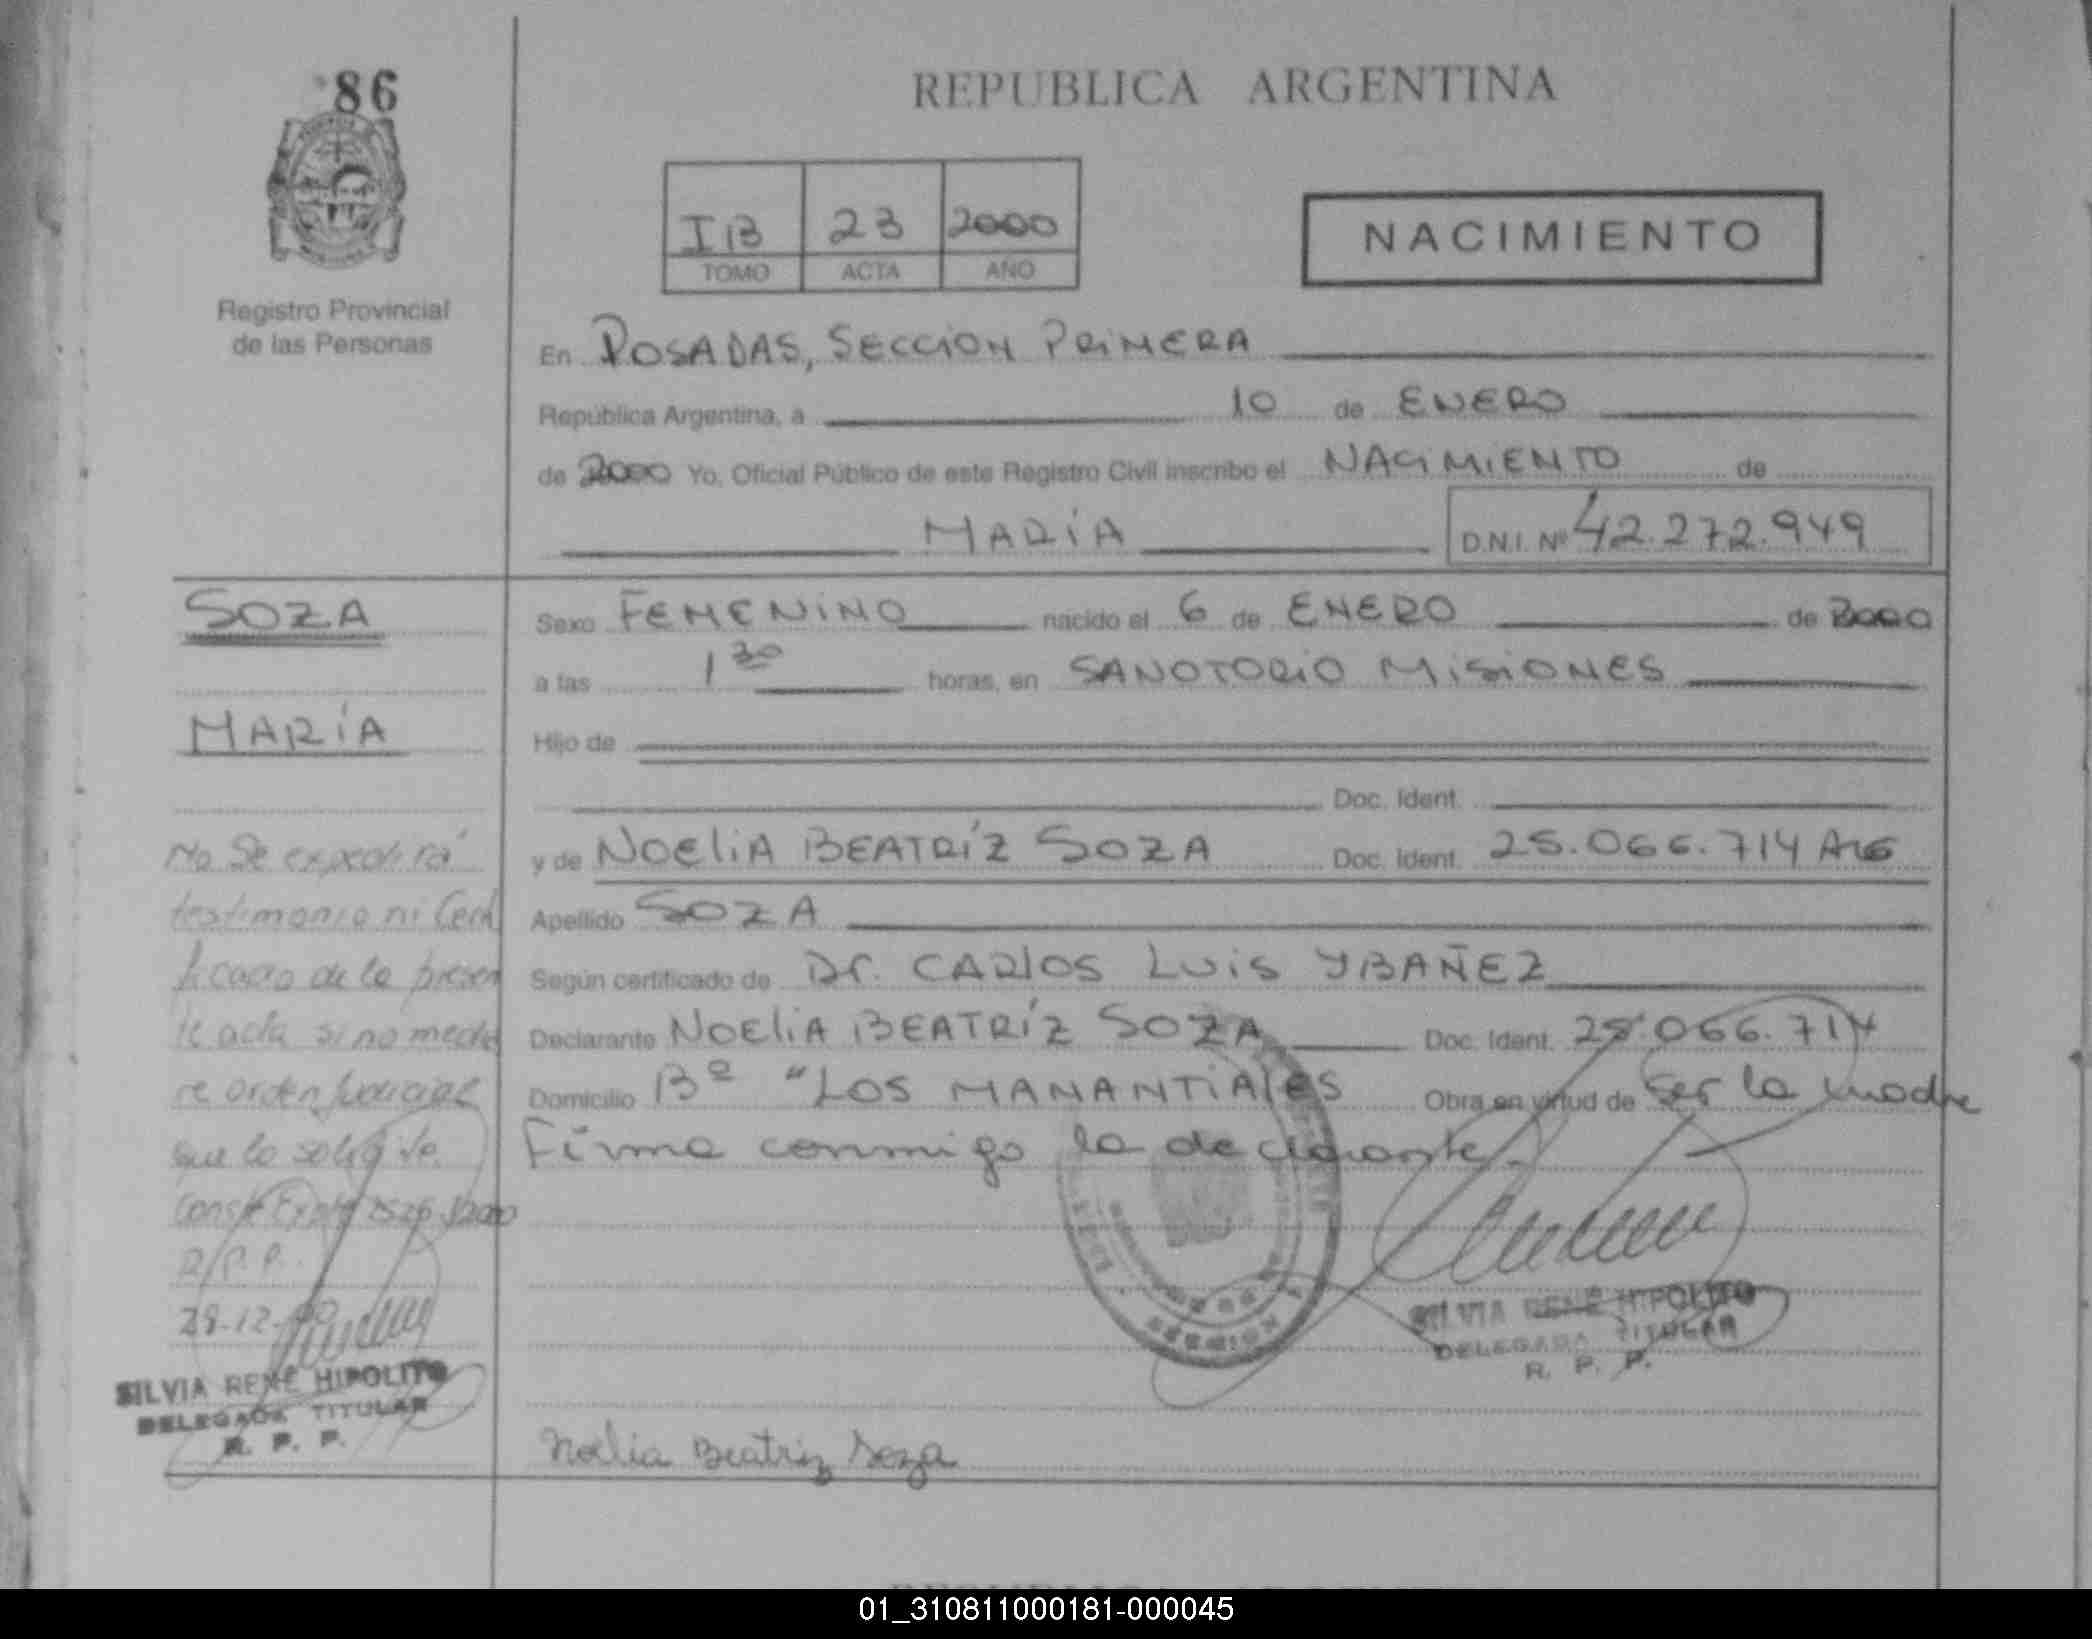 86
REPUBLICA ARGENTINA
IB 23 2000
TOMO ACTA AÑO
NACIMIENTO
Registro Provincial
de las Personas
En POSADAS, SECCION PRIMERA
República Argentina, a 10 de ENERO
de 2000 Yo, Oficial Público de este Registro Civil inscribo el NACIMIENTO de
MARÍA D.N.I. Nº 42.272.949
SOZA
Sexo FEMENINO nacido el 6 de ENERO de 2000
a las 1 30 horas, en SANOTORIO MISIONES
MARÍA
Hijo de
Doc. Ident.
y de NOELIA BEATRÍZ SOZA Doc. Ident. 25.066.714 ARG
Apellido SOZA
Según certificado de Dr. CARLOS LUIS YBAÑEZ
Declarante NOELIA BEATRÍZ SOZA Doc. Ident. 25.066.714
Domicilio Bº "LOS MANANTIALES Obra en virtud de ser la madre
Firma conmigo la declarante.
No Se expedirá
testimonio ni Cert
ficado de la presen
te acta si no media
re orden Judicial
que lo solicite.
Const Expte 2000
R.P.P.
28-12-
SILVIA RENE HIPOLITO
DELEGADA TITULAR
R. P. P.
SILVIA RENE HIPOLITO
DELEGADA TITULAR
R. P. P.
Noelia Beatriz Soza
01_310811000181-000045